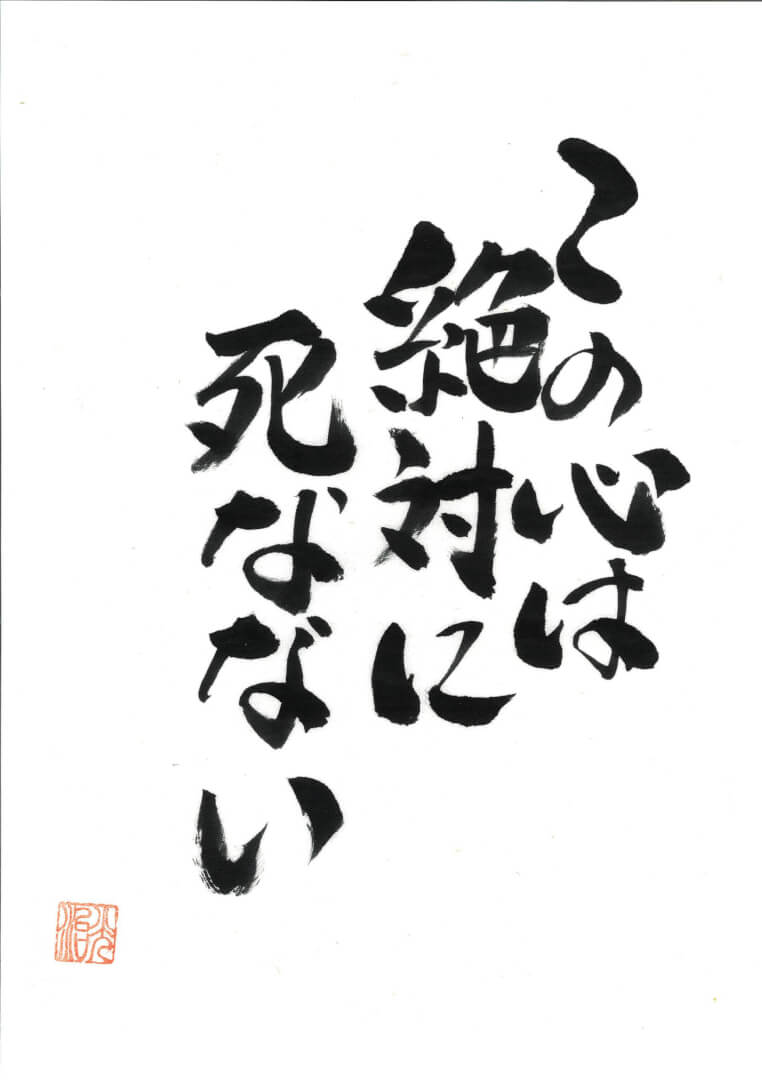 この心は
絶対に
死なない